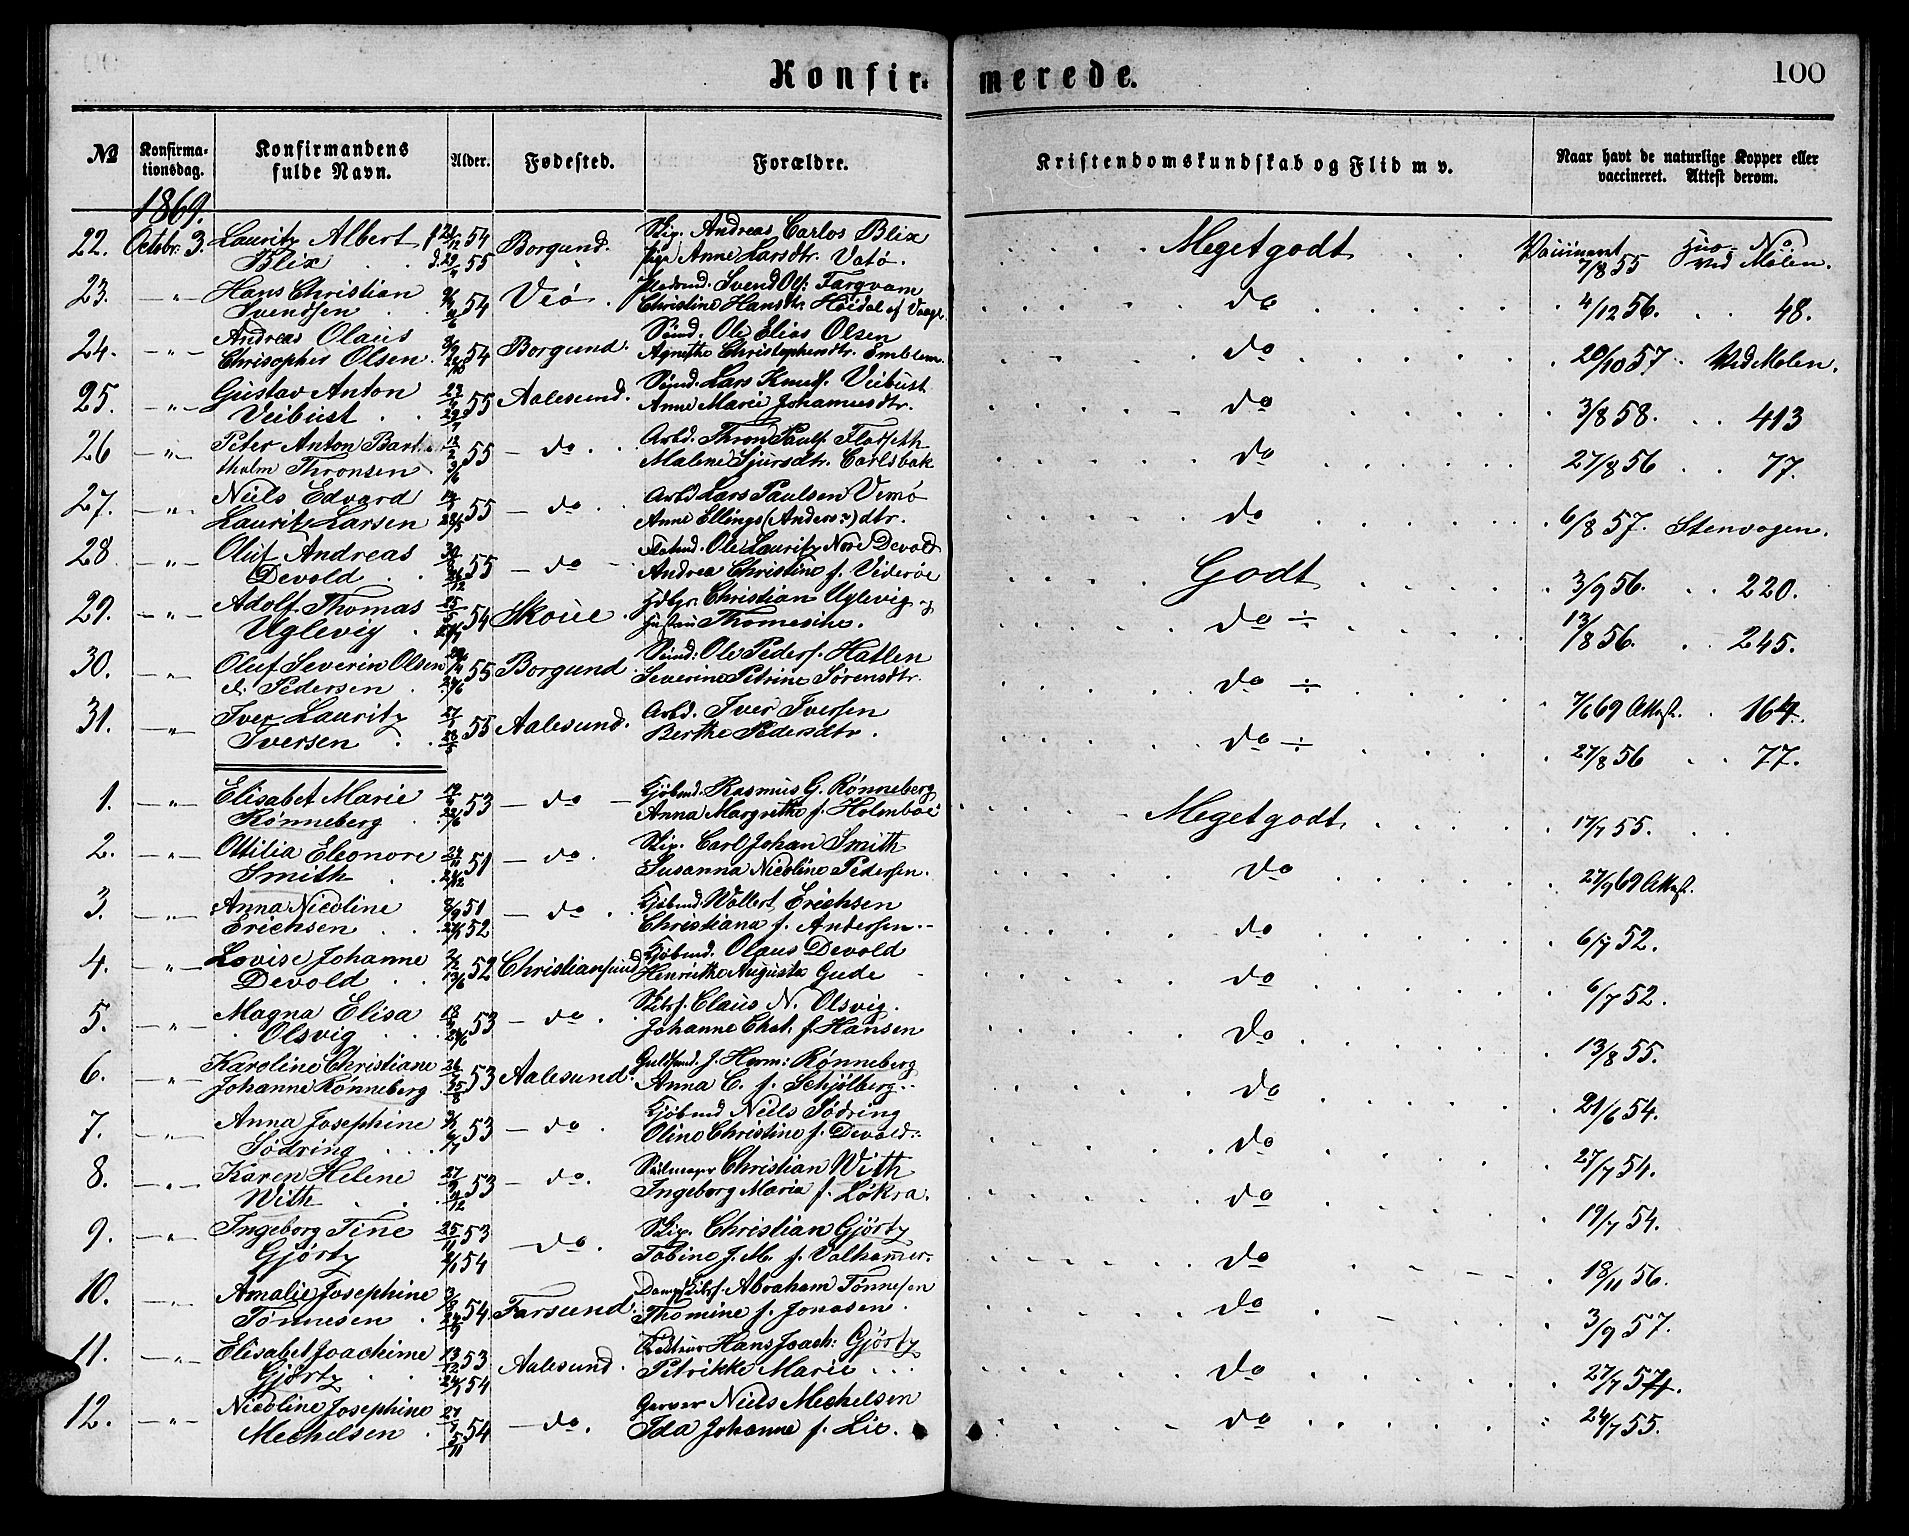 Konfir- merede. 100
№ Konfirma- Konfirmandens Alder. Fødested. Forældre. Kristendomskundskab og Flid m v. Naar havt de naturlige Kopper eller
tionsdag. fulde Navn. vaccineret. Attest derom.
1869.
22. Octobr. 3. Lauritz Albert 54 Borgund. Skip. Andreas Carlos Blix Megetgodt Vaccineret No
Blix d. 29/4 55 Anne Larsdtr. Vatø. 7/8 55 ved Molen.
23. -"- Hans Christian 54 Veø. Svend Ols. Fargvam do 4/12 56. 48.
Svendsen Christine Hansdtr. Høidal af Vaagø.
24. -"- Andreas Olaus 54 Borgund. Ole Elias Olsen do 20/10 57. Ved Molen.
Chrisopher Olsen Agnethe Christophersdtr. Emblem.
25. -"- Gustav Anton 55 Aalesund. Lars Knuds. Veibust do 3/8 58. 413
Veibust Anne Marie Johannesdtr.
26 -"- Peter Anton Bart- 55 - do. Arbd. Thron Pauls. Flatseth do 27/8 56 77.
tholm Thronsen Malene Sjursdtr. Carlsbak
27. -"- Niels Edvard 55 - do. Arbd Lars Paulsen Vemø do 6/8 57. Stenvagen.
Lauritz Larsen Anne Ellings (Anders?) dtr.
28 -"- Oluf Andreas 55 - do - Ole Lauritz Nore Devold Godt 3/9 56 220.
Devold Andrea Christine f. Viderøe
29. -"- Adolf Thomas 54 Skoue. Christian Uglevig og do ÷ 13/8 56. 245.
Uglevig Hustru Thomesine.
30. -"- Oluf Severin Olsen 55 Borgund. Ole Peders. Hatlen do ÷ 7/6 69 Attest. 164.
el. Pedersen Severine Petrine Sørensdtr.
31. -"- Iver Lauritz 55 Aalesund. Arbd. Iver Iversen do ÷ 27/8 56 77.
Iversen Berthe Pedersdtr.
1. -"- Elisabet Marie 53 - do - Kjøbmd. Rasmus G. Rønneberg Megetgodt 17/7 55.
Rønneberg Anna Margrethe f. Holmboe
2. -"- Ottilia Eleonore 51 - do. Skip. Carl Johan Smith do 27/9 69 Attest.
Smith Susanna Nicoline Pedersen.
3. -"- Anna Nicoline 8/9 51 - do. Kjøbmd. Wollert Erichsen do 6/7 52.
Erichsen 52 Christiana f. Andersen.
4. -"- Lovise Johanne 52 Christiansund Kjøbmd. Olaus Devold do 6/7 52.
Devold Henriette Augusta Gude
5. -"- Magna Elisa 53 - do. Claus N. Olsvig. do 13/8 55.
Olsvig Johanne Chat. f. Hansen
6. -"- Karoline Christiane 53 Aalesund. Guldsmd. J. Herm: Rønneberg do 21/6 54.
Johanne Rønneberg Anna C. f. Schjølberg.
7. -"- Anna Josephine 53 - do. Kjøbmd Niels Sødring do 27/7 54.
Sødring Oline Christine f. Devold.
8. -"- Karen Helene 53 - do. Christian With do 19/7 54.
With Ingeborg Maria f. Løkra.
9. -"- Ingeborg Tine 25/11 53 - do. Skip. Christian Gjørtz do 18/11 56.
Gjørtz 54 Tobine J. M. f. Valkamer.
10. -"- Amalie Josephine 54. Farsund. Abraham Tønnesen do 3/9 57.
Tønnesen Thomine f. Jonasen.
11. -"- Elisabet Joachime 13/12 53 Aalesund. Hans Joach: Gjørtz do 27/7 57.
Gjørtz 54 Petrikke Marie
12. -"- Nicoline Josephine 54 - do. Garver Niels Mechelsen do 24/7 55.
Mechelsen Ida Johanne f. Lie.